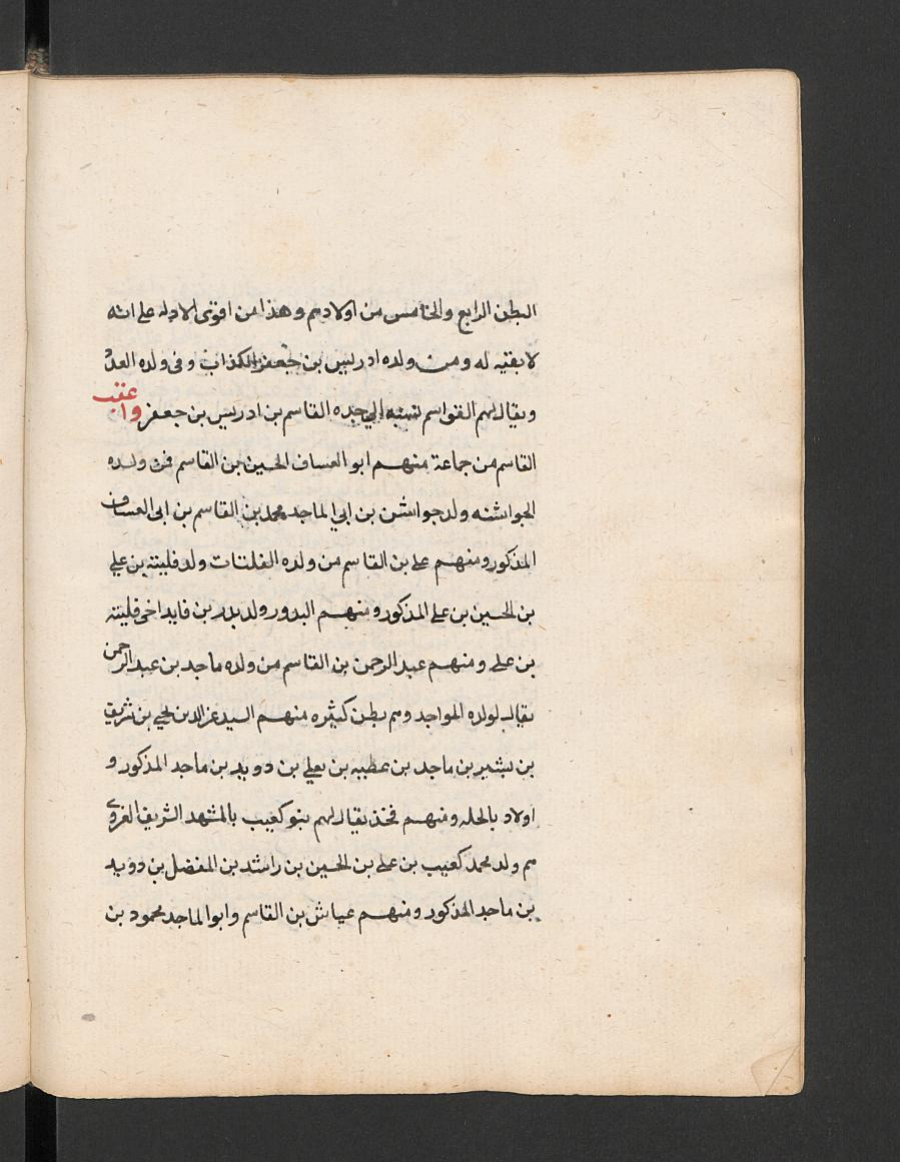 البطن الرابع والخامس من اولادهم وهذا من اقوى الادله على انه
لا بقيه له ومن ولده ادريس بن جعفر الكذاب وفى ولده العدد
ويقال لهم القواسم نسبه الى جده القاسم بن ادريس بن جعفر واعقب
القاسم من جماعة منهم ابو العساف الحسين بن القاسم فمن ولده
الجواشنه ولد جواشن بن ابي الماجد محمد بن القاسم بن ابى العساف
المذكور ومنهم على بن القاسم من ولده الفلتات ولد فليته بن علي
بن الحسين بن على المذكور ومنهم البدور ولد بدر بن فايد اخى فليته
بن على ومنهم عبد الرحمن بن القاسم من ولده ماجد بن عبد الرحمن
يقال لولده المواجد وهم بطن كثيره منهم السيد عز الدين يحيى بن شريف
بن بشير بن ماجد بن عطيه بن يعلي بن دويد بن ماجد المذكور و
اولاد بالحله ومنهم فخذ يقال لهم بنو كعيب بالمشهد الشريف الغروى
هم ولد محمد كعيب بن على بن الحسين بن راشد بن المفضل بن دويد
بن ماجد المذكور ومنهم عياش بن القاسم وابو الماجد محمود بن